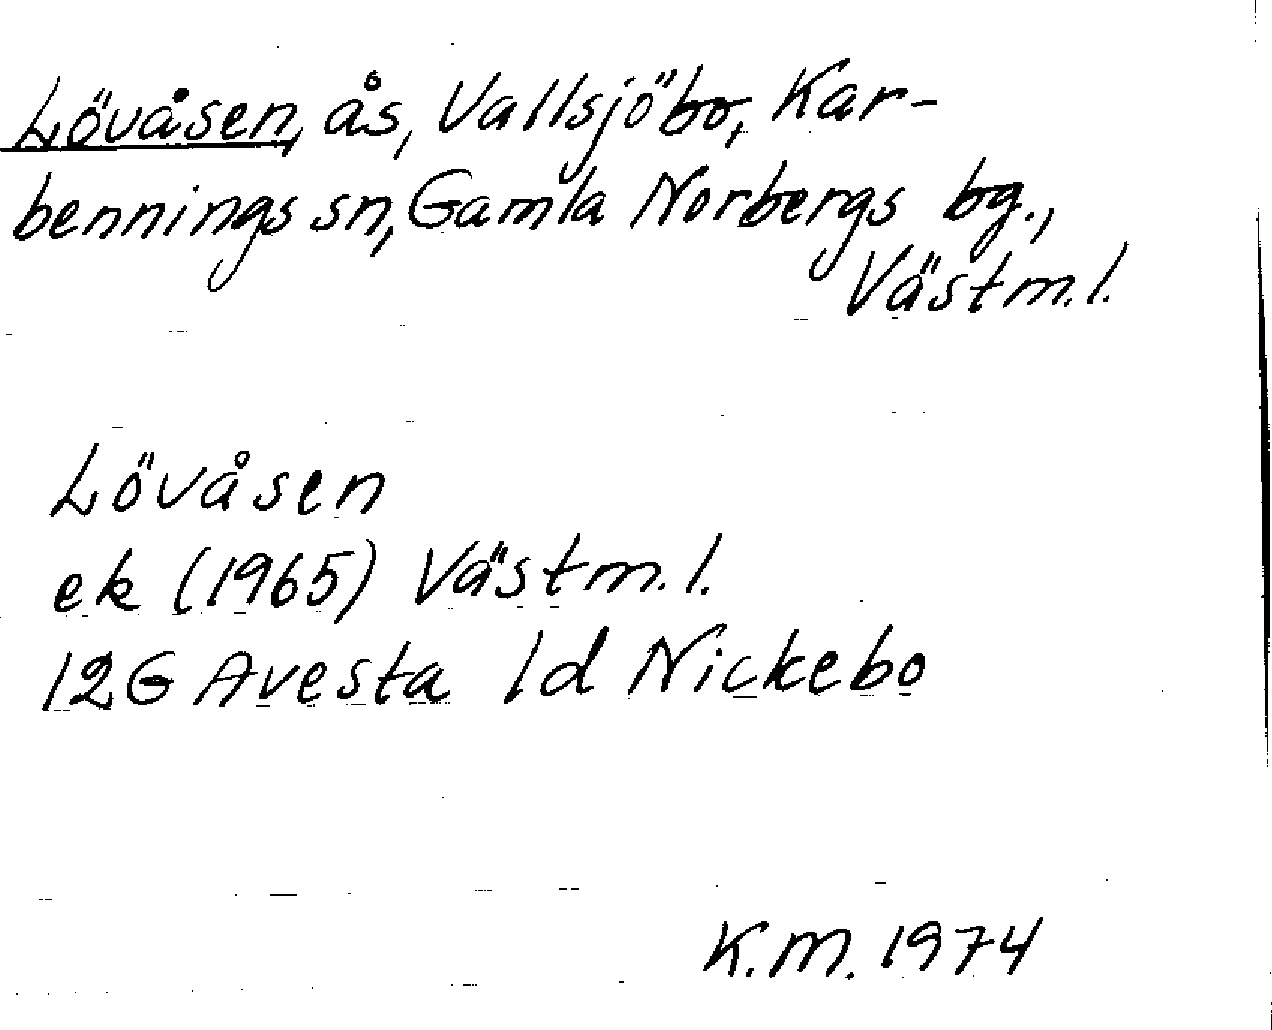 Lövåsen, ås, Vallsjöbo, Kar-
bennings sn, Gamla Norbergs bg.,
Västm.l.
Lövåsen
ek (1965) Västm.l.
12G Avesta 1d Nickebo
K.M. 1974